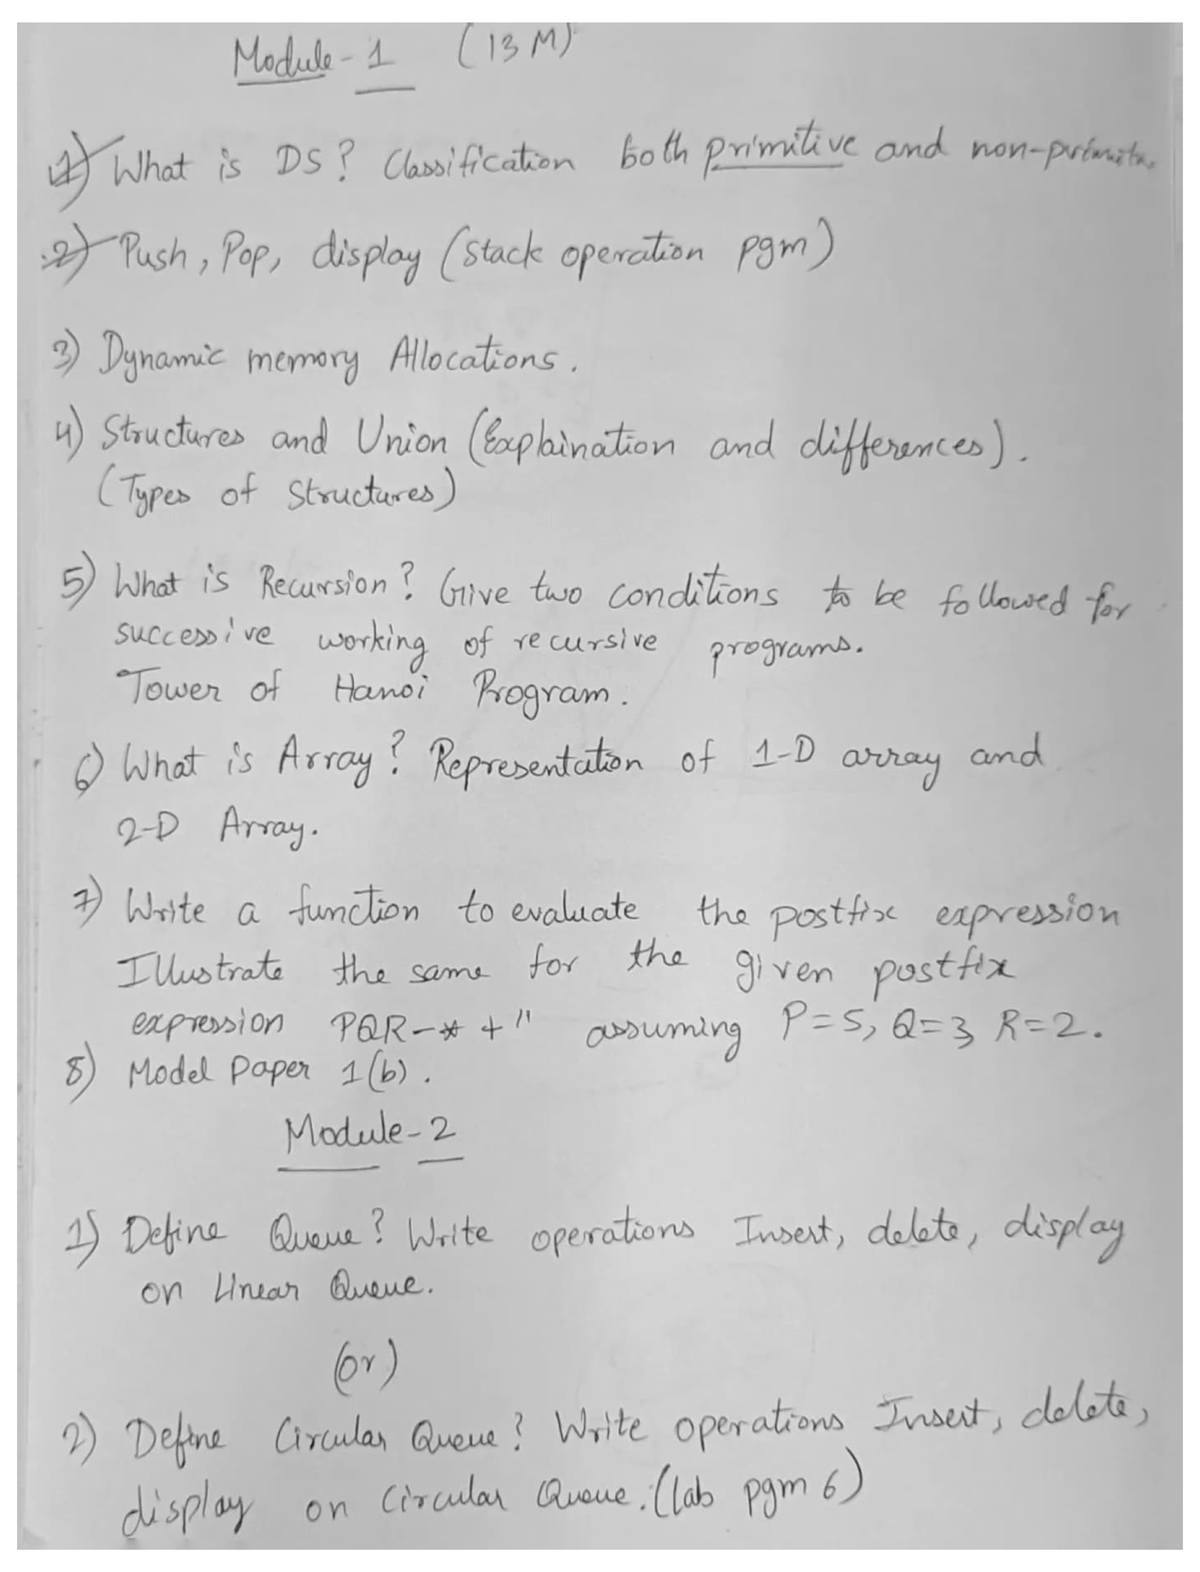 Module-1 (13 M)
1) What is DS? Classification both primitive and non-primitive
2) Push, Pop, display (stack operation pgm)
3) Dynamic memory Allocations.
4) Structures and Union (Explaination and differences).
(Types of Structures)
5) What is Recursion? Give two conditions to be followed for
successive working of recursive programs.
Tower of Hanoi Program.
6) What is Array? Representation of 1-D array and
2-D Array.
7) Write a function to evaluate the postfix expression
Illustrate the same for the given postfix
expression PQR-*+" assuming P=5, Q=3, R=2.
8) Model Paper 1(b).
Module-2
1) Define Queue? Write operations Insert, delete, display
on Linear Queue.
(or)
2) Define Circular Queue? Write operations Insert, delete,
display on Circular Queue. (lab pgm 6)